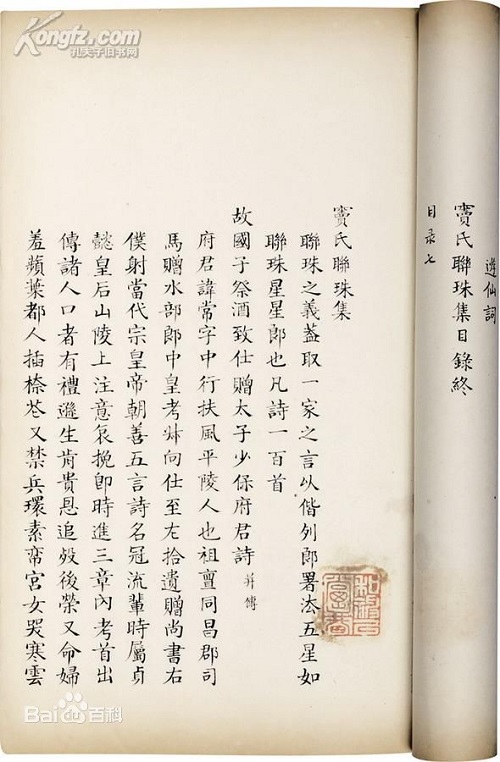 Kongfz.com
孔夫子旧书网
遊仙詞
竇氏聯珠集目錄終
目录七
竇氏聯珠集
聯珠之義葢取一家之言以偕列郎署法五星如
聯珠星星郎也凡詩一百首
故國子祭酒致仕贈太子少保府君詩 并傳
府君諱常字中行扶風平陵人也祖亶同昌郡司
馬贈水部郎中皇考叔向仕至左拾遺贈尚書右
僕射當代宗皇帝朝善五言詩名冠流輩時屬貞
懿皇后山陵上注意哀挽即時進三章內考首出
傳諸人口者有禮遜生肯貴恩追歿後榮又命婦
羞蘋葉都人插㮈花又禁兵環素帟宮女哭寒雲
Bai百科